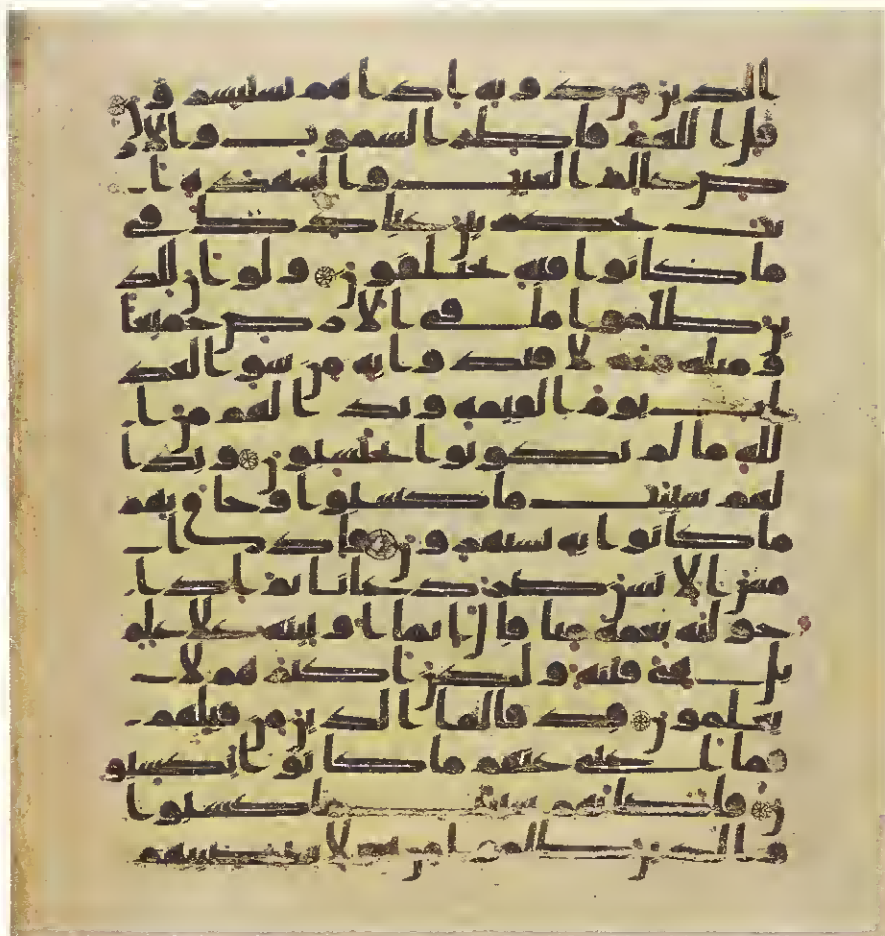 الذين من دونه اذا هم يستبشرون
قل اللهم فاطر السموت والار
ض علم الغيب والشهدة ا
نت تحكم بين عبادك في
ما كانوا فيه يختلفون ولو ان للذ
ين ظلموا ما في الارض جميعا
و مثله معه لافتدوا به من سو العذ
اب يوم القيمة وبدا لهم من ا
لله ما لم يكونوا يحتسبون وبدا
لهم سيات ما كسبوا وحاق بهم
ما كانوا به يستهزون فاذا
مس الانسن ضر دعانا ثم اذا
خولنه نعمة منا قال انما اوتيته على علم
بل هي فتنة ولكن اكثرهم لا
يعلمون قد قالها الذين من قبلهم
فما اغنى عنهم ما كانوا يكسبو
ن فاصابهم سيات ما كسبوا
والذين ظلموا من هولا سيصيبهم